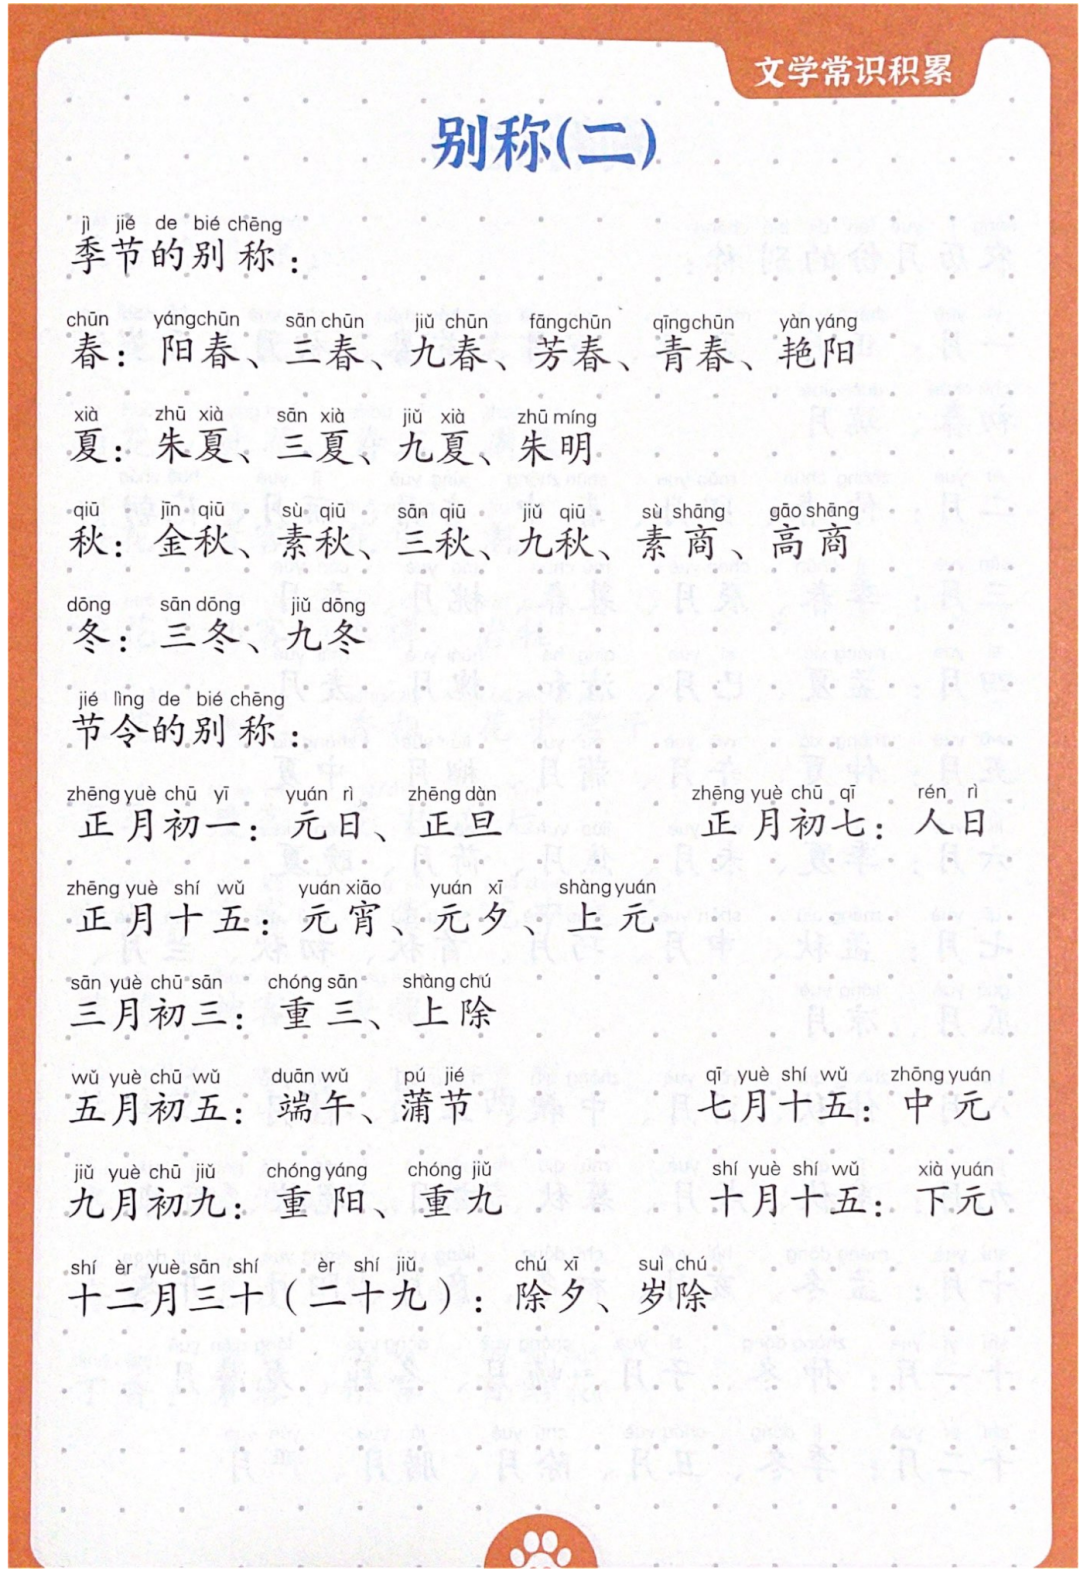 文学常识积累
别称(二)
jì jié de bié chēng
季节的别称：
chūn yángchūn sān chūn jiǔ chūn fāngchūn qīngchūn yàn yáng
春：阳春、三春、九春、芳春、青春、艳阳
xià zhū xià sān xià jiǔ xià zhū míng
夏：朱夏、三夏、九夏、朱明
qiū jīn qiū sù qiū sān qiū jiǔ qiū sù shāng gāo shāng
秋：金秋、素秋、三秋、九秋、素商、高商
dōng sān dōng jiǔ dōng
冬：三冬、九冬
jié lìng de bié chēng
节令的别称：
zhēng yuè chū yī yuán rì zhēng dàn zhēng yuè chū qī rén rì
正月初一：元日、正旦 正月初七：人日
zhēng yuè shí wǔ yuán xiāo yuán xī shàng yuán
正月十五：元宵、元夕、上元
sān yuè chū sān chóng sān shàng chú
三月初三：重三、上除
wǔ yuè chū wǔ duān wǔ pú jié qī yuè shí wǔ zhōng yuán
五月初五：端午、蒲节 七月十五：中元
jiǔ yuè chū jiǔ chóng yáng chóng jiǔ shí yuè shí wǔ xià yuán
九月初九：重阳、重九 十月十五：下元
shí èr yuè sān shí èr shí jiǔ chú xī suì chú
十二月三十（二十九）：除夕、岁除